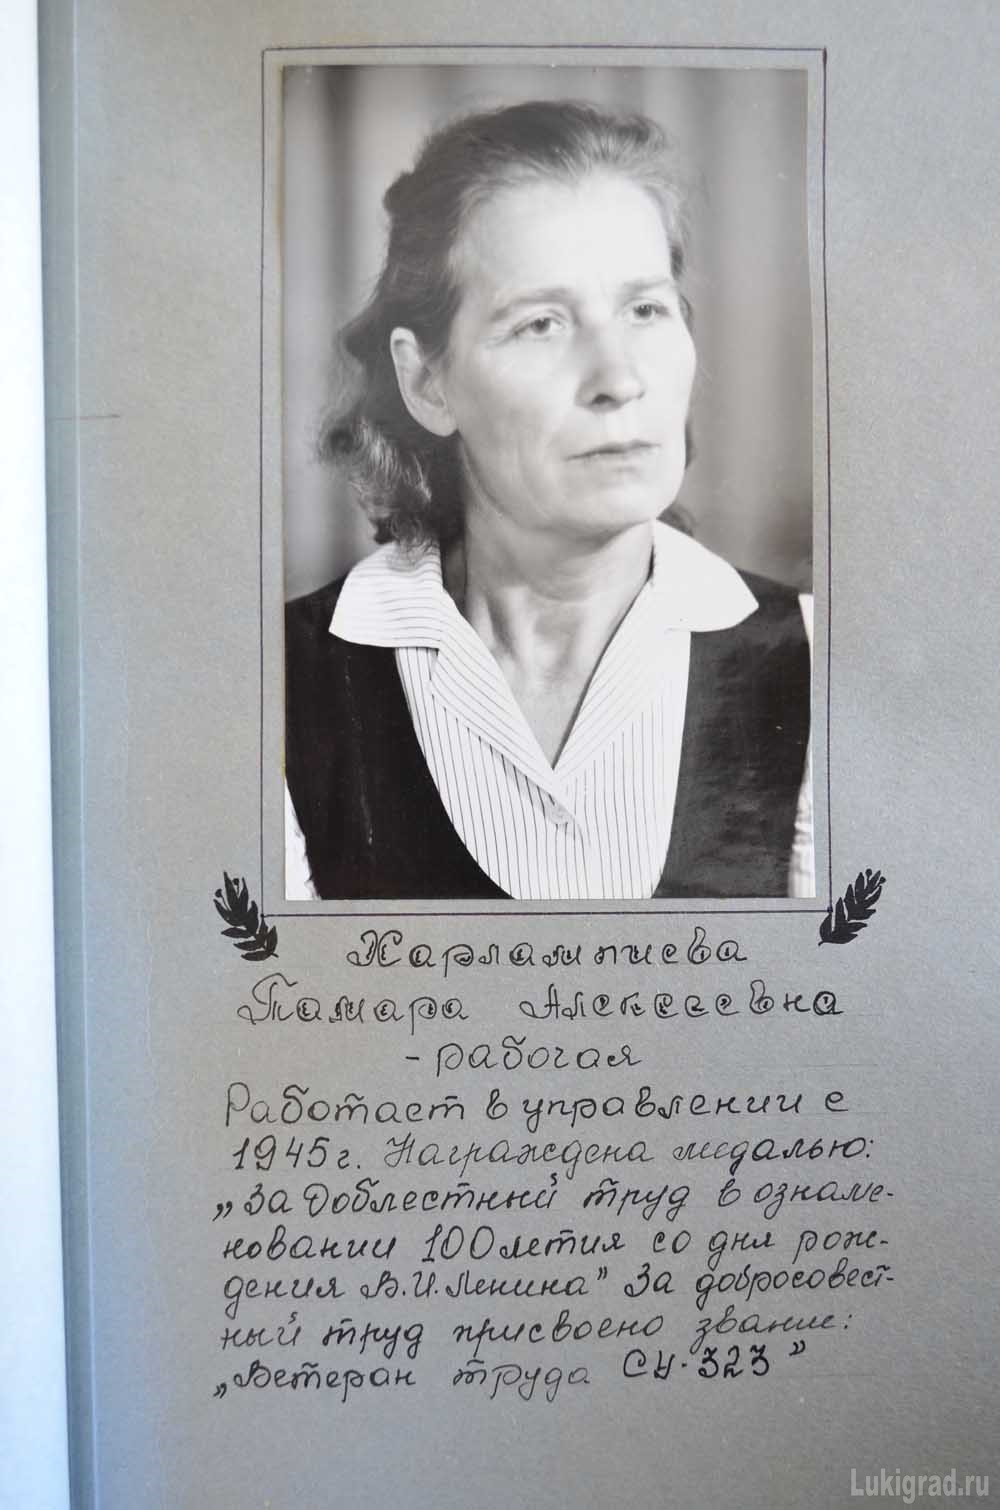 Харлампиева
Тамара Алексеевна
- рабочая
Работает в управлении с
1945г. Награждена медалью:
„За Доблестный труд в ознаме-
новании 100летия со дня рож-
дения В.И.Ленина” За добросовест-
ный труд присвоено звание:
„Ветеран труда СУ-323”
Lukigrad.ru